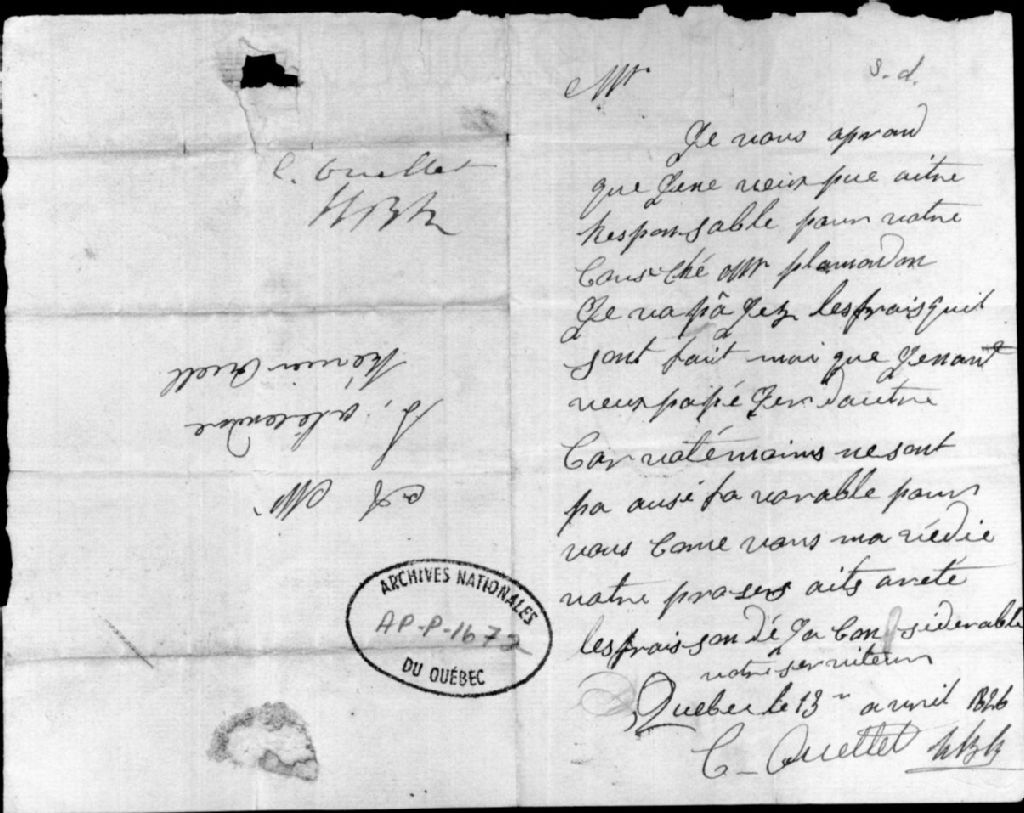 C. Ouellet
HBK
A Mr
S, alécendre
Mr
s. d.
Je vous aprand
que Jene veux pue aitre
Responsable pour votre
Cous Ché Mr plamondon
Je va pâ Jez les frais quil
sont fait moi que Jenant
veux pa pé Jer dautre
Car vos témoins ne sont
pa ausi fa vorable pour
vous Come vous ma viédie
votre pro-sers aits areté
les frais son dé Ja Con siderable
votre serviteur
Quebec le 13 avril 1826
C - Ouellet HBK
ARCHIVES NATIONALES
AP-P-1672
DU QUÉBEC